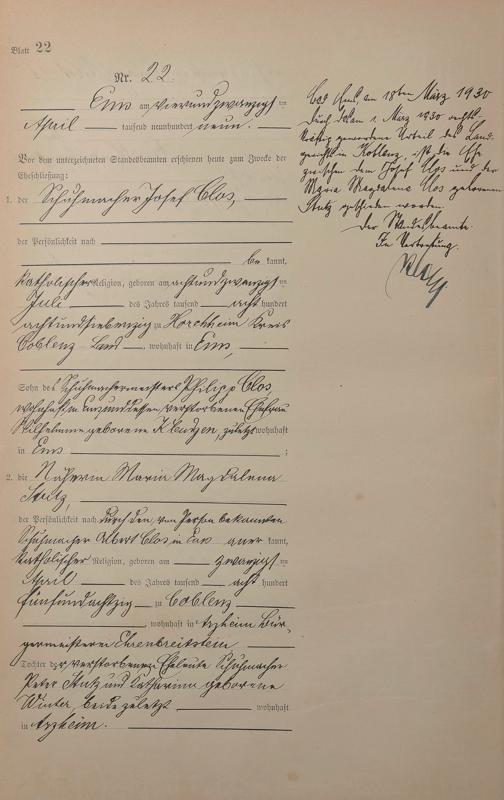 Blatt 22
Nr. 22.
Ems am vierundzwanzigsten
April tausend neunhundert neun.
Vor dem unterzeichneten Standesbeamten erschienen heute zum Zwecke der
Eheschließung:
1. der Schuhmacher Josef Clos,
der Persönlichkeit nach
be kannt,
katholischer Religion, geboren am achtundzwanzigsten
Juli des Jahres tausend acht hundert
achtundsiebenzig zu Horchheim Kreis
Coblenz Land, wohnhaft in Ems,
Sohn des Schuhmachermeisters Philipp Clos
wohnhaft in Ems und dessen verstorbenen Ehefrau
Wilhelmine geborene, zuletzt wohnhaft
in Ems ;
2. die Näherin Maria Magdalena
Stutz,
der Persönlichkeit nach durch den von Person bekannten
Schuhmacher Albert Clos in Ems aner kannt,
katholischer Religion, geboren am zwanzigsten
April des Jahres tausend acht hundert
fünfundachtzig zu Coblenz
, wohnhaft in Arzheim Bür-
germeisterei Ehrenbreitstein
Tochter der verstorbenen Eheleute Schuhmacher
Peter Stutz und Katharina geborene
Winter, beide zuletzt wohnhaft
in Arzheim.
Bad Ems, am 18ten März 1930
Durch das am 1. März 1930 rechts-
kräftig gewordene Urteil des Land-
gerichts in Koblenz, ist die Ehe
zwischen dem Josef Clos und der
Maria Magdalena Clos geborenen
Stutz geschieden worden.
Der Standesbeamte.
In Vertretung.